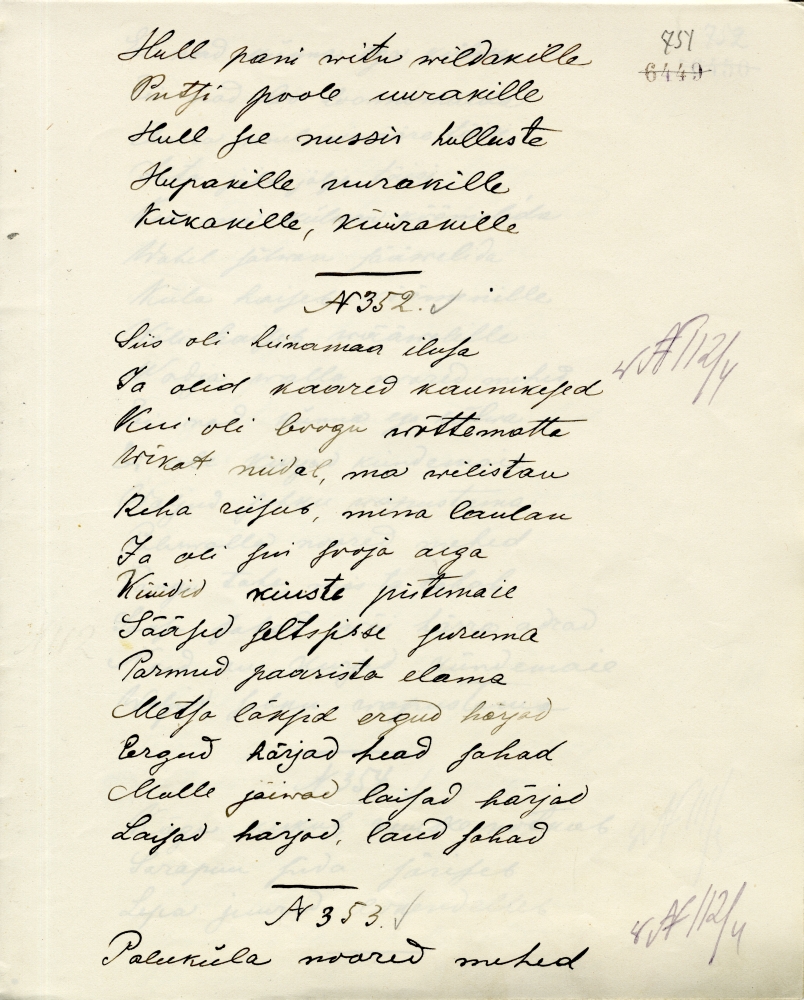 751
6449
Hull pani witu wildakille
Putsi poole uurakille
Hull se nussis hulluste
Hupakille uurakille
Kükakille, küürakille
N 352.
Siis oli heinamaa ilusa
Ja olid kaared kaunikesed
Kui oli loogu wõttematta
Wikat niidal, ma wilistan
Reha riisub, mina laulan
Ja oli sui sooja aega
Kiinid kiuste pistemaie
Sääsed seltsisse suruma
Parmud paarista elama
Metsa läksid ergud härjad
Eergud härjad head sahad
Mulle jäiwad laisad härjad
Laisad härjad, laud sahad
N 353.
Paluküla noored mehed